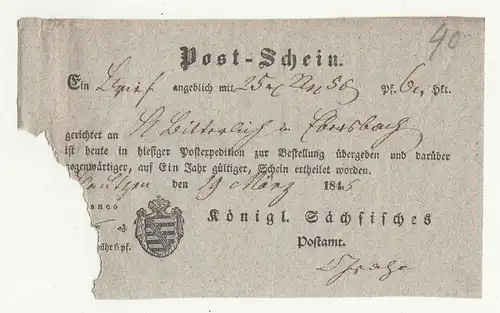 40
Post-Schein.
Ein Brief angeblich mit 25 r Pf. 6 Lt.
gerichtet an A Bitterlich in Ebersbach
ist heute in hiesiger Postexpedition zur Bestellung übergeben und darüber
gegenwärtiger, auf Ein Jahr gültiger, Schein ertheilet worden.
den 19 März 1845
anco
Königl. Sächsisches
ühr 6 pf.
Postamt.